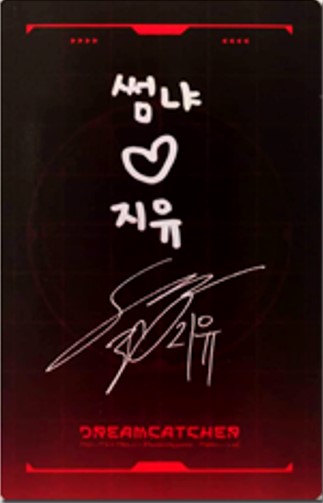 썸냐
♡
지유
지유
DREAMCATCHER